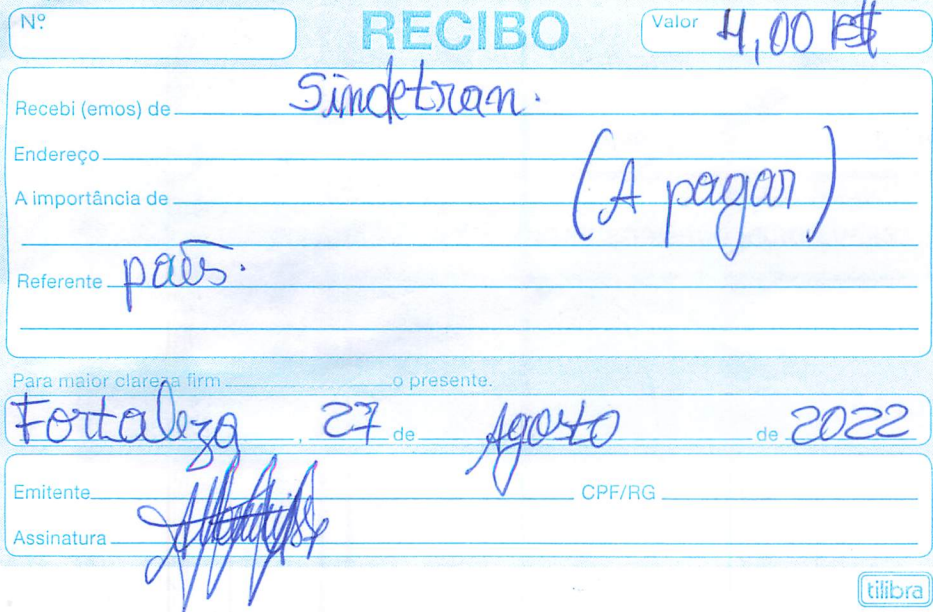 Nº RECIBO Valor 4,00 R$
Recebi (emos) de Sindetran.
Endereço
A importância de (A pagar)
Referente pães.
Para maior clareza firm o presente.
Fortaleza, 27 de Agosto de 2022
Emitente CPF/RG
Assinatura
tilibra